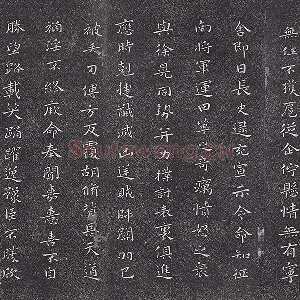 無任不獲扈從企佇懸情無有寧
舍即日長史逮充宣示令命知征
南將軍運田單之奇厲憤怒之眾
與徐晃同勢并力撲討表裏俱進
應時剋捷馘滅凶逆賊帥關羽已
被矢刃傅方反覆胡脩背恩天道
禍淫不終厥命奉聞嘉憙喜不自
勝望路載笑踊躍逸豫臣不勝欣